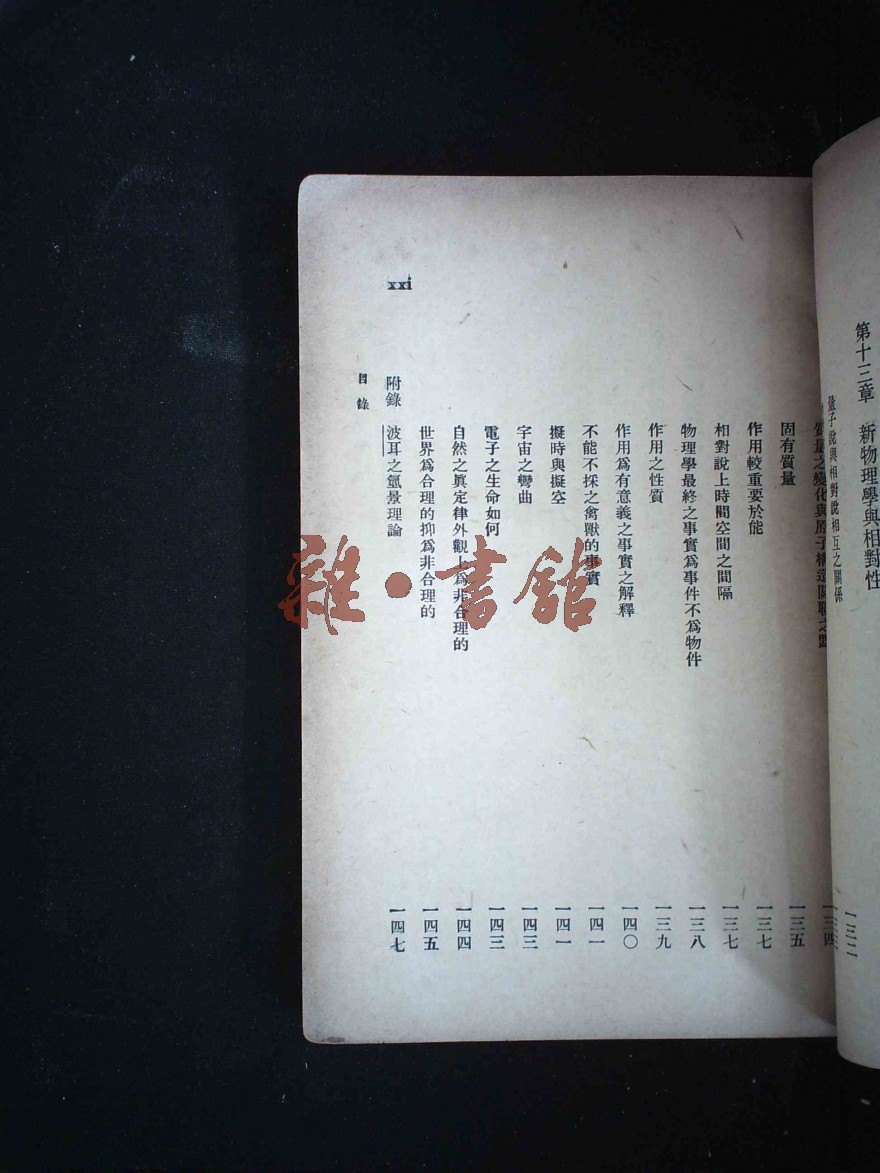 第十三章　新物理學與相對性　一三二
量子說與相對說相互之關係
質量之變化與原子構造關聯之點　一三四
固有質量　一三五
作用較重要於能　一三七
相對說上時間空間之間隔　一三七
物理學最終之事實為事件不為物件　一三八
作用之性質　一三九
作用為有意義之事實之解釋　一四〇
不能不採之禽獸的事實　一四一
擬時與擬空　一四一
宇宙之彎曲　一四三
電子之生命如何　一四三
自然之眞定律外觀上為非合理的　一四四
世界為合理的抑為非合理的　一四五
附錄　波耳之氫景理論　一四七
目錄
xxi
雜·書館